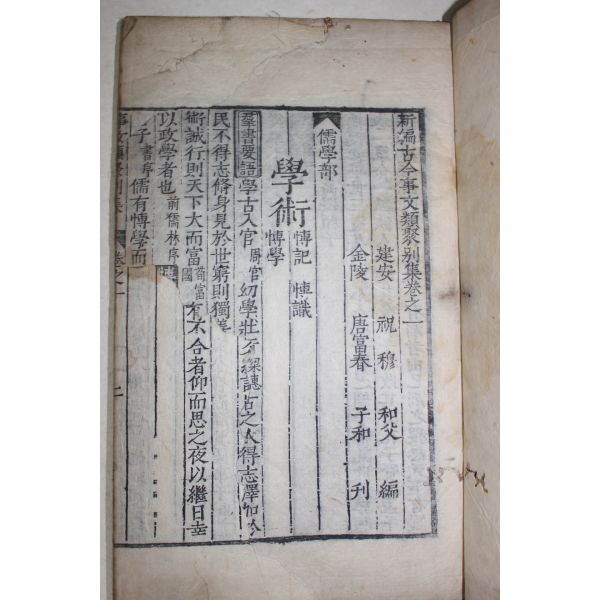 新編古今事文類聚别集卷之一
建安 祝穆 和父 編
金陵 唐富春 子和 刊
儒學部
學術 愽記 愽識 愽學
羣書要語學古入官周官幼學壯行 古之人得志澤加於
民不得志修身見於世窮則獨善
術誠行則天下大而富荀富國 有不合者仰而思之夜以繼日幸
以政學者也前儒林序
子書序儒有愽學而
卷之一
二